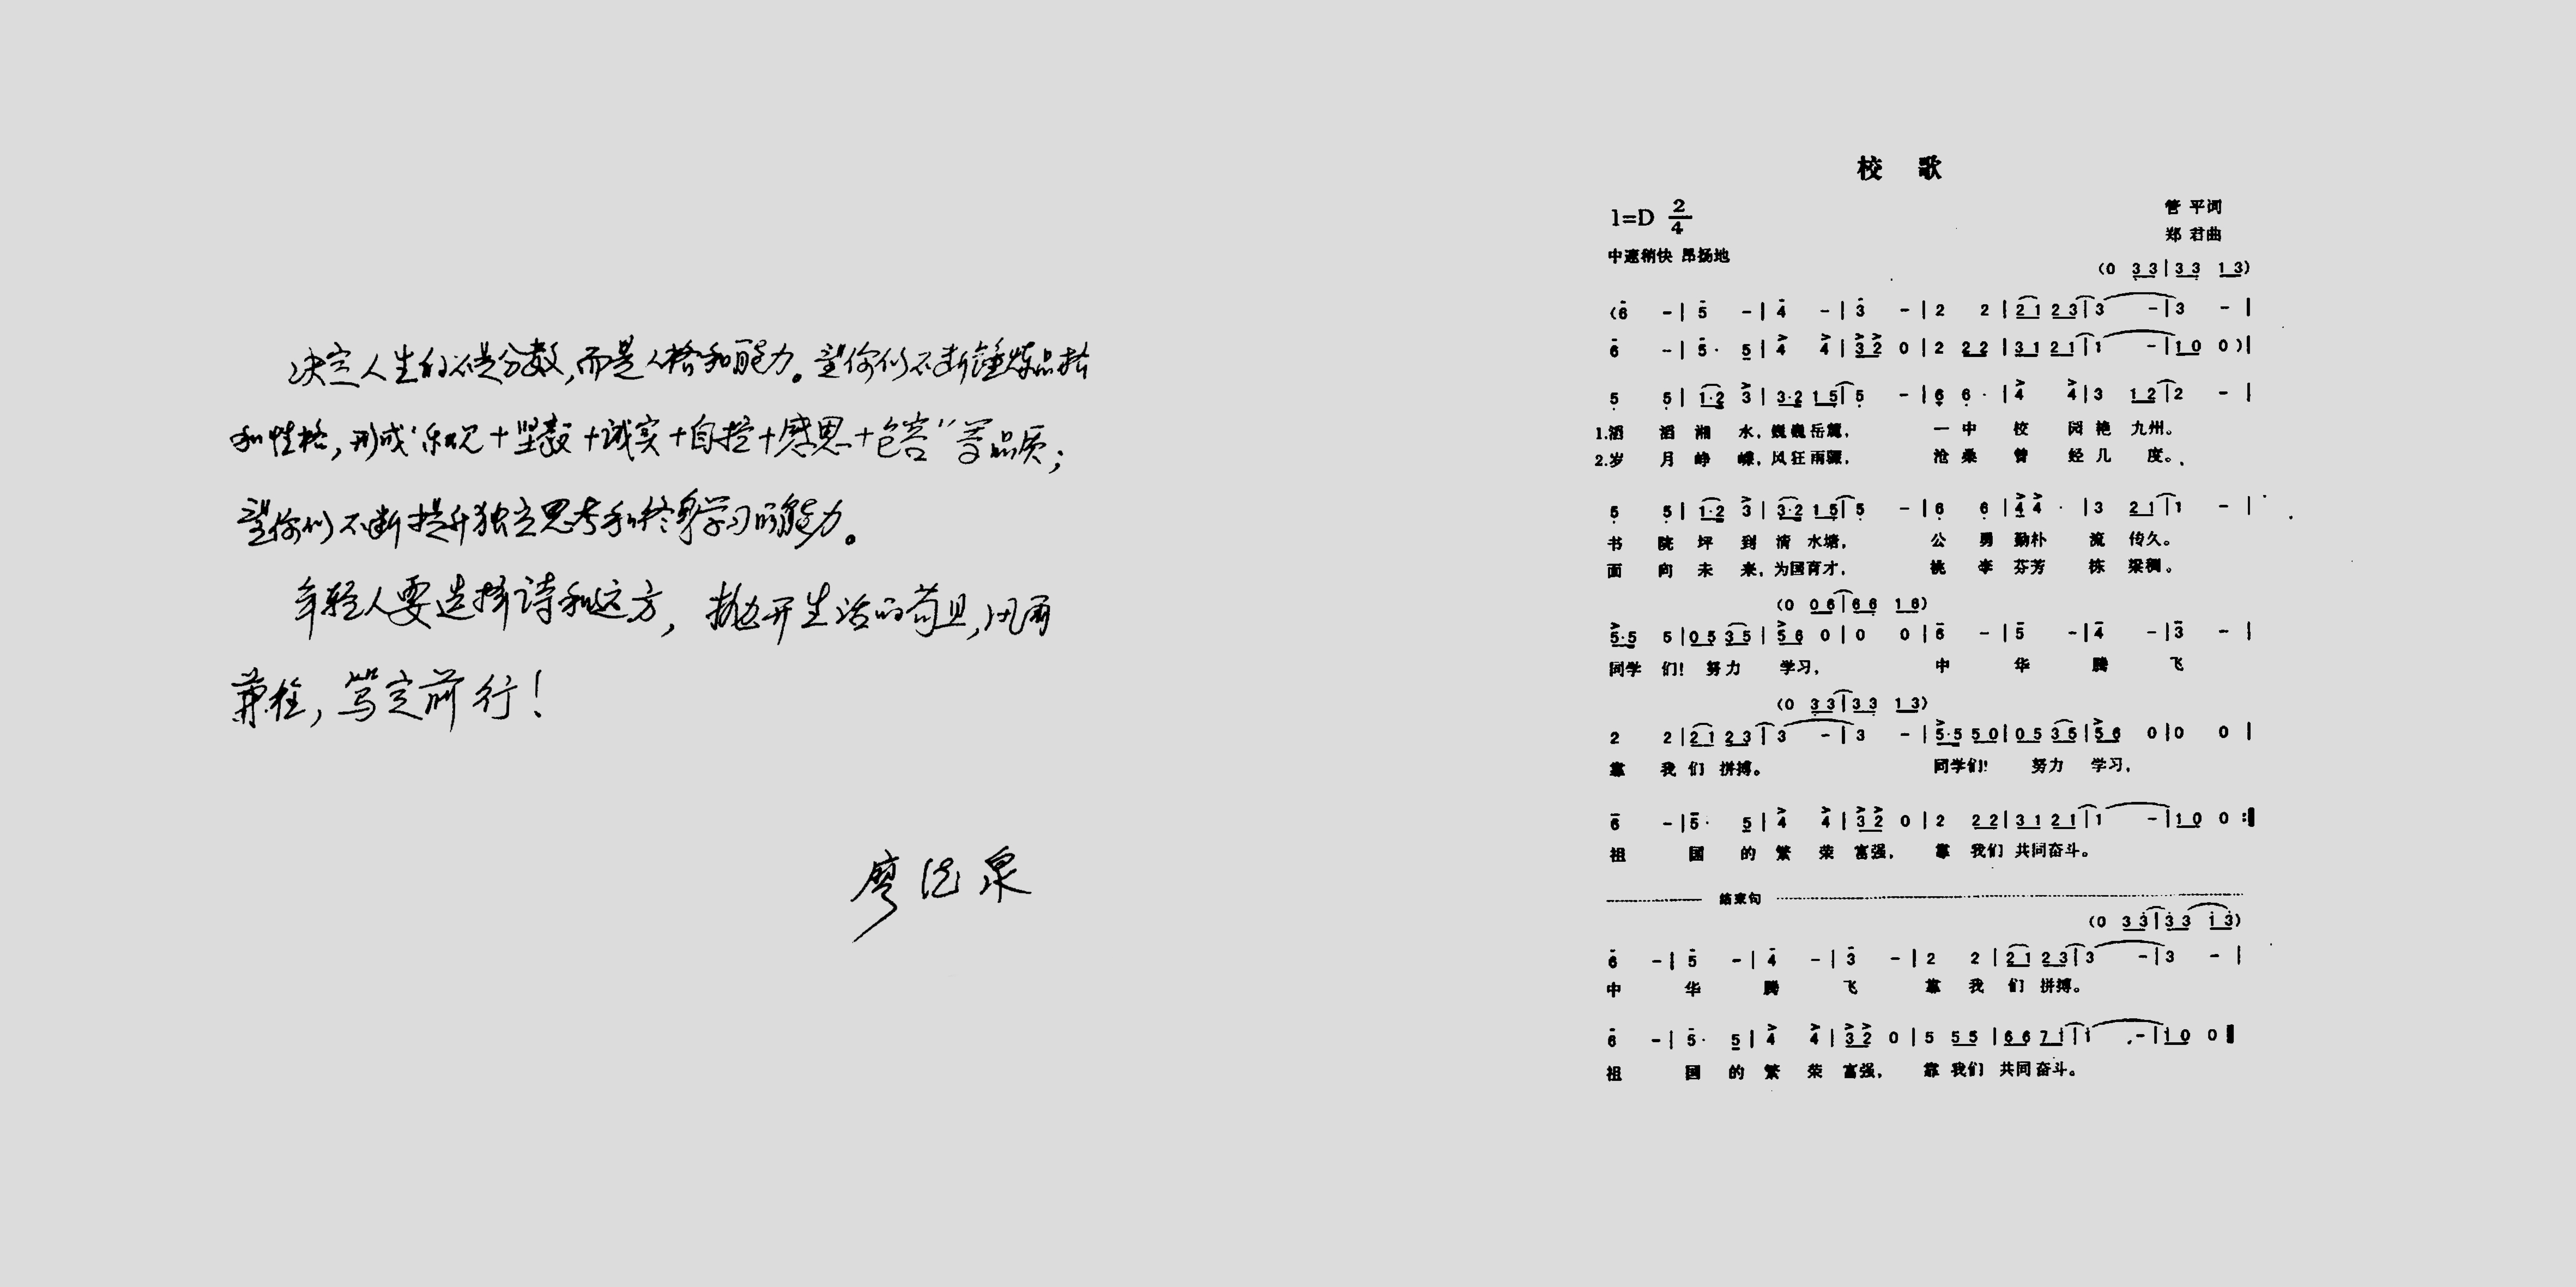 决定人生的不是分数,而是人格和能力。望你们不断锤炼品格
和性格,形成“乐观+坚毅+诚实+自控+感恩+包容”等品质;
望你们不断提升独立思考和终身学习的能力。
年轻人要选择诗和远方,抛开生活的苟且,风雨
兼程,笃定前行!
廖德泉
校 歌
1=D 2/4
管 平词
郑 君曲
中速稍快 昂扬地
(0 3 3 | 3 3 1 3)
(6 - | 5 - | 4 - | 3 - | 2 2 | 2 1 2 3 | 3 - | 3 - |
6 - | 5· 5 | 4 4 | 3 2 0 | 2 2 2 | 3 1 2 1 | 1 - | 1 0 0 ) |
5 5 | 1·2 3 | 3·2 1 5 | 5 - | 6 6· | 4 4 | 3 1 2 | 2 - |
1.滔 滔 湘 水, 巍巍岳麓, 一 中 校 园 艳 九州。
2.岁 月 峥 嵘, 风狂雨骤, 沧 桑 曾 经 几 度。
5 5 | 1·2 3 | 3·2 1 5 | 5 - | 6 6 | 4 4 · | 3 2 1 | 1 - |
书 院 坪 到 清 水塘, 公 勇 勤朴 流 传久。
面 向 未 来, 为国育才, 桃 李 芬芳 栋 梁稠。
(0 0 6 | 6 6 1 6)
5·5 5 | 0 5 3 5 | 5 6 0 | 0 0 | 6 - | 5 - | 4 - | 3 - |
同学 们! 努力 学习, 中 华 腾 飞
(0 3 3 | 3 3 1 3)
2 2 | 2 1 2 3 | 3 - | 3 - | 5·5 5 0 | 0 5 3 5 | 5 6 0 | 0 0 |
靠 我 们 拼搏。 同学们! 努力 学习,
6 - | 5· 5 | 4 4 | 3 2 0 | 2 2 2 | 3 1 2 1 | 1 - | 1 0 0 :|
祖 国 的 繁 荣 富强, 靠 我们 共同奋斗。
结束句
(0 3 3 | 3 3 1 3)
6 - | 5 - | 4 - | 3 - | 2 2 | 2 1 2 3 | 3 - | 3 - |
中 华 腾 飞 靠 我 们 拼搏。
6 - | 5· 5 | 4 4 | 3 2 0 | 5 5 5 | 6 6 7 1 | 1 - | 1 0 0 |
祖 国 的 繁 荣 富强, 靠 我们 共同奋斗。